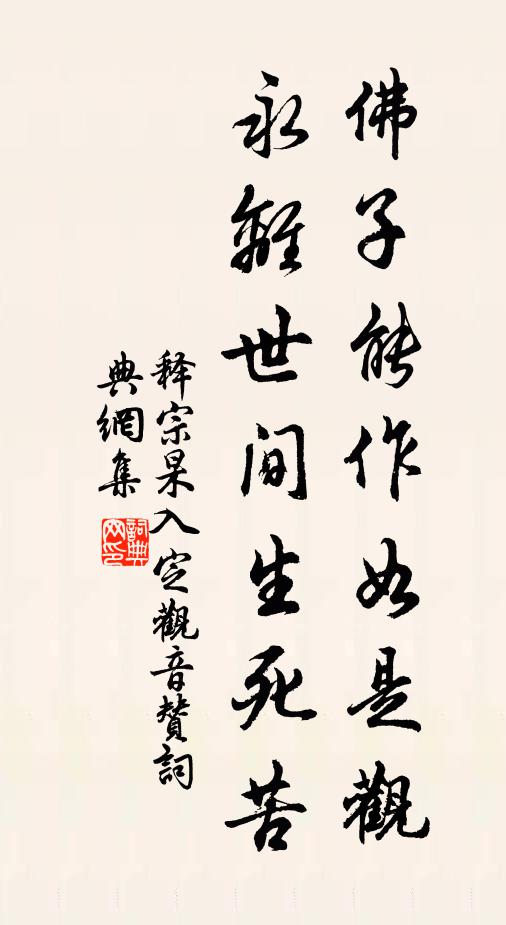 佛子能作如是觀
永離世間生死苦
釋宗杲入定觀音贊詞
典網集
詞典網印